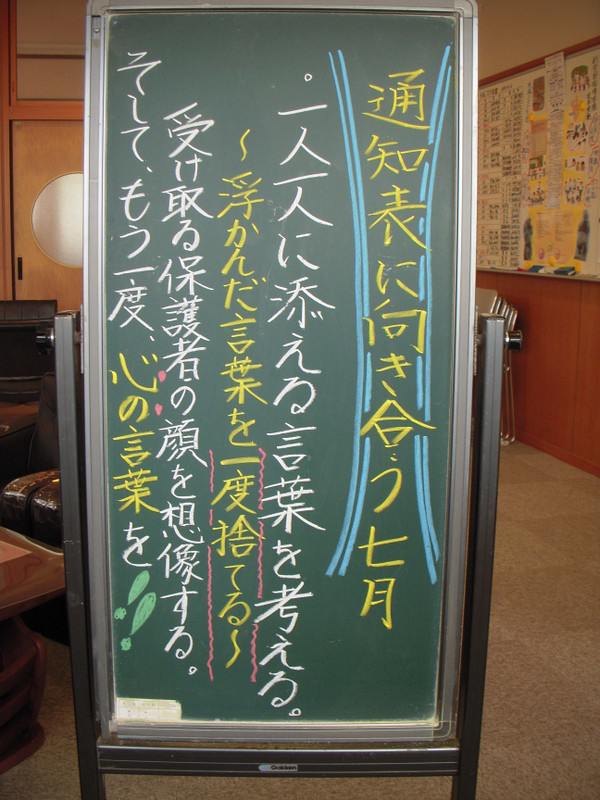 通知表に向き合う七月
。一人一人に添える言葉を考える。
～浮かんだ言葉を一度捨てる～
受け取る保護者の顔を想像する。
そして、もう一度、心の言葉を!!
Gakken